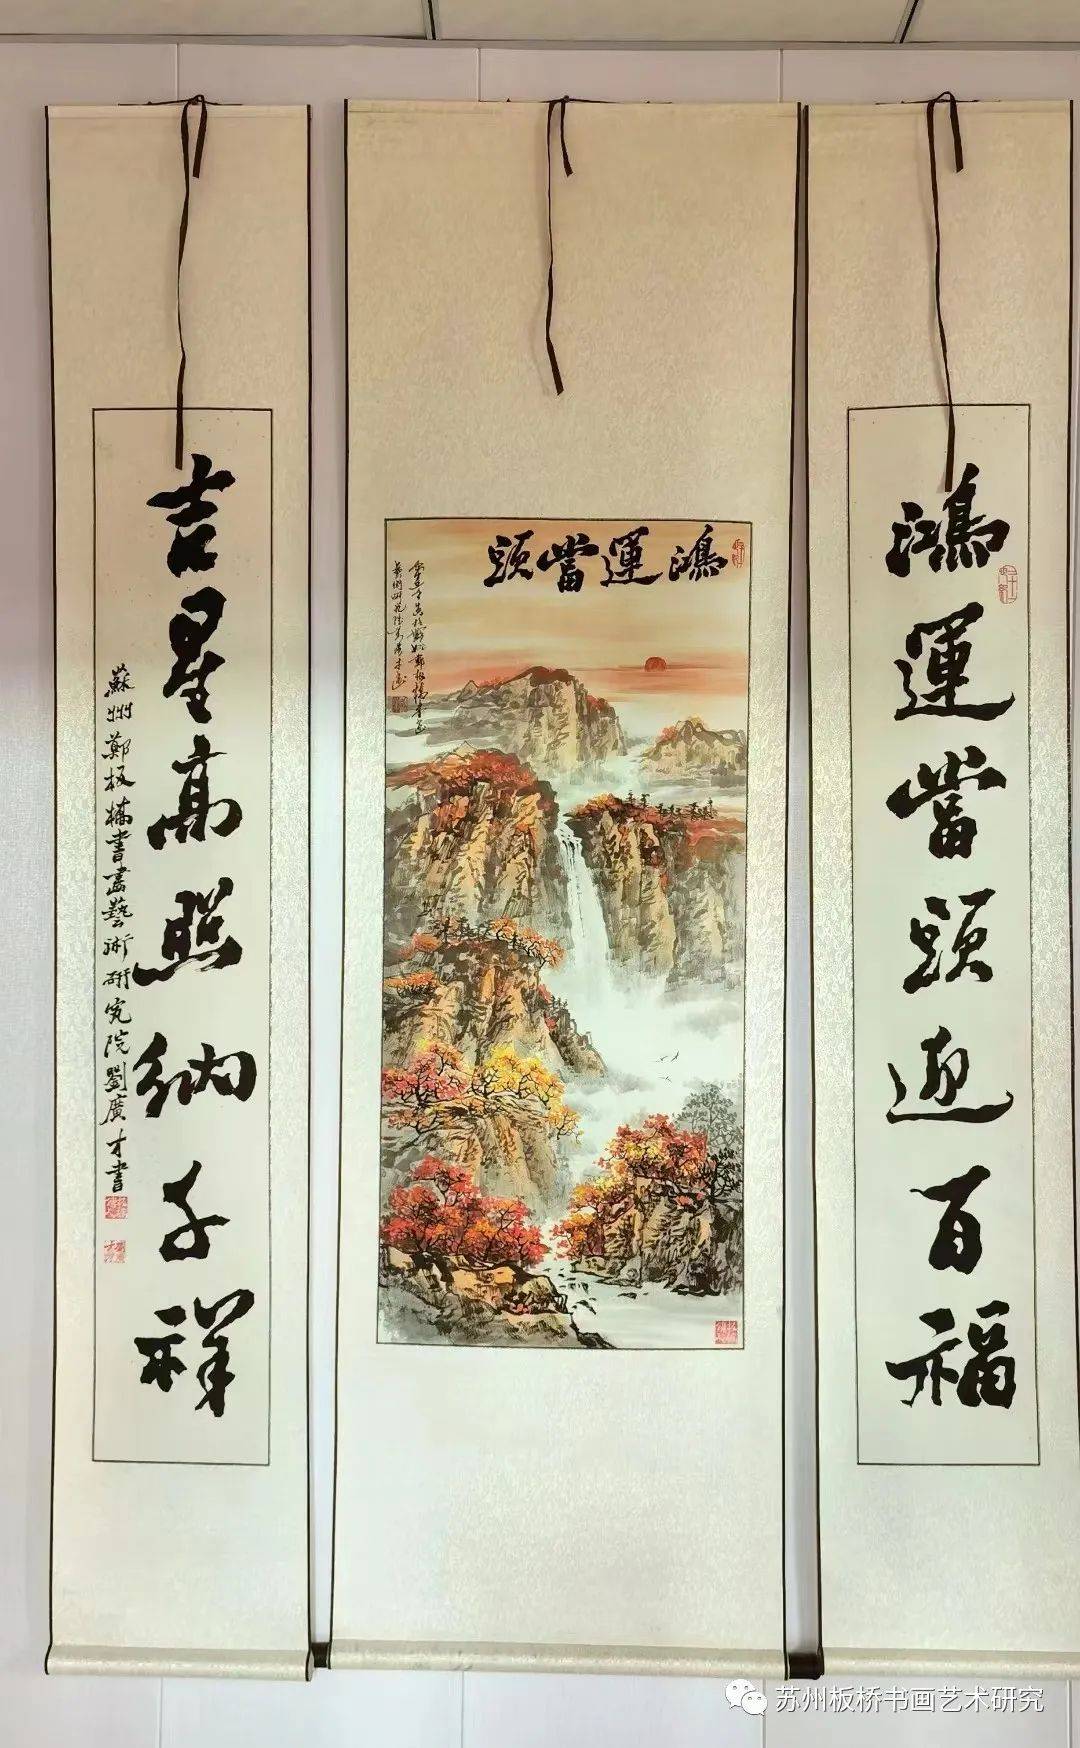 鴻運當頭迎百福
鴻運當頭
吉星高照納千祥
蘇州鄭板橋書畫藝術研究院劉廣才書
苏州板桥书画艺术研究